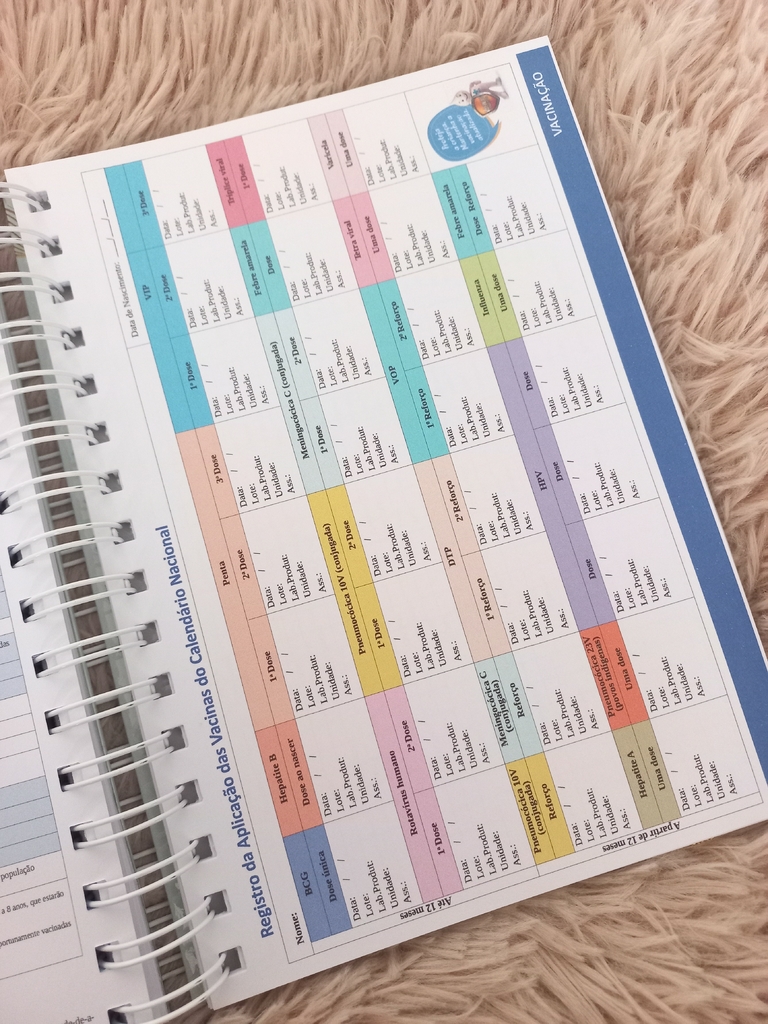 Registro da Aplicação das Vacinas do Calendário Nacional
Nome:
Data de Nascimento: __/__/__
Até 12 meses
BCG
Dose única
Data: / /
Lote:
Lab.Produt:
Unidade:
Ass.:
Hepatite B
Dose ao nascer
Data: / /
Lote:
Lab.Produt:
Unidade:
Ass.:
Penta
1ª Dose
2ª Dose
3ª Dose
Data: / /
Lote:
Lab.Produt:
Unidade:
Ass.:
Data: / /
Lote:
Lab.Produt:
Unidade:
Ass.:
Data: / /
Lote:
Lab.Produt:
Unidade:
Ass.:
VIP
1ª Dose
2ª Dose
3ª Dose
Data: / /
Lote:
Lab.Produt:
Unidade:
Ass.:
Data: / /
Lote:
Lab.Produt:
Unidade:
Ass.:
Data: / /
Lote:
Lab.Produt:
Unidade:
Ass.:
Rotavírus humano
1ª Dose
2ª Dose
Data: / /
Lote:
Lab.Produt:
Unidade:
Ass.:
Data: / /
Lote:
Lab.Produt:
Unidade:
Ass.:
Pneumocócica 10V (conjugada)
1ª Dose
2ª Dose
Data: / /
Lote:
Lab.Produt:
Unidade:
Ass.:
Data: / /
Lote:
Lab.Produt:
Unidade:
Ass.:
Meningocócica C (conjugada)
1ª Dose
2ª Dose
Data: / /
Lote:
Lab.Produt:
Unidade:
Ass.:
Data: / /
Lote:
Lab.Produt:
Unidade:
Ass.:
Febre amarela
Dose
Data: / /
Lote:
Lab.Produt:
Unidade:
Ass.:
Tríplice viral
1ª Dose
Data: / /
Lote:
Lab.Produt:
Unidade:
Ass.:
A partir de 12 meses
Pneumocócica 10V
(conjugada)
Reforço
Data: / /
Lote:
Lab.Produt:
Unidade:
Ass.:
Meningocócica C
(conjugada)
Reforço
Data: / /
Lote:
Lab.Produt:
Unidade:
Ass.:
DTP
1º Reforço
2º Reforço
Data: / /
Lote:
Lab.Produt:
Unidade:
Ass.:
Data: / /
Lote:
Lab.Produt:
Unidade:
Ass.:
VOP
1º Reforço
2º Reforço
Data: / /
Lote:
Lab.Produt:
Unidade:
Ass.:
Data: / /
Lote:
Lab.Produt:
Unidade:
Ass.:
Tetra viral
Uma dose
Data: / /
Lote:
Lab.Produt:
Unidade:
Ass.:
Varicela
Uma dose
Data: / /
Lote:
Lab.Produt:
Unidade:
Ass.:
Hepatite A
Uma dose
Data: / /
Lote:
Lab.Produt:
Unidade:
Ass.:
Pneumocócica 23V
(povos indígenas)
Uma dose
Data: / /
Lote:
Lab.Produt:
Unidade:
Ass.:
HPV
Dose
Dose
Dose
Data: / /
Lote:
Lab.Produt:
Unidade:
Ass.:
Data: / /
Lote:
Lab.Produt:
Unidade:
Ass.:
Data: / /
Lote:
Lab.Produt:
Unidade:
Ass.:
Influenza
Uma dose
Data: / /
Lote:
Lab.Produt:
Unidade:
Ass.:
Febre amarela
Dose Reforço
Data: / /
Lote:
Lab.Produt:
Unidade:
Ass.:
VACINAÇÃO
população
a 8 anos, que estarão
portunamente vacinadas